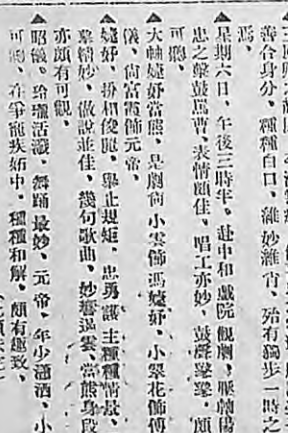 善合身分、種種白口、維妙維肖、殆有獨步一時之
焉、
▲星期六日、午後三時半、赴中和戲院觀劇、聚
忠之擊鼓罵曹、表情頗佳、唱工亦妙、鼓聲鼕鼕、頗
可聽、
▲大軸婕妤當熊、是劇尚小雲飾馮婕妤、小翠花飾傅
儀、尚富霞飾元帝、
▲婕妤、扮相俊麗、舉止規矩、忠勇護主種種情景、
摹精妙、做說並佳、幾句歌曲、妙響遏雲、當熊身段
亦頗有可觀、
▲昭儀、玲瓏活潑、舞踊最妙、元帝、年少瀟洒、小
可聽、在爭寵疾妬中、種種和解、頗有趣致、